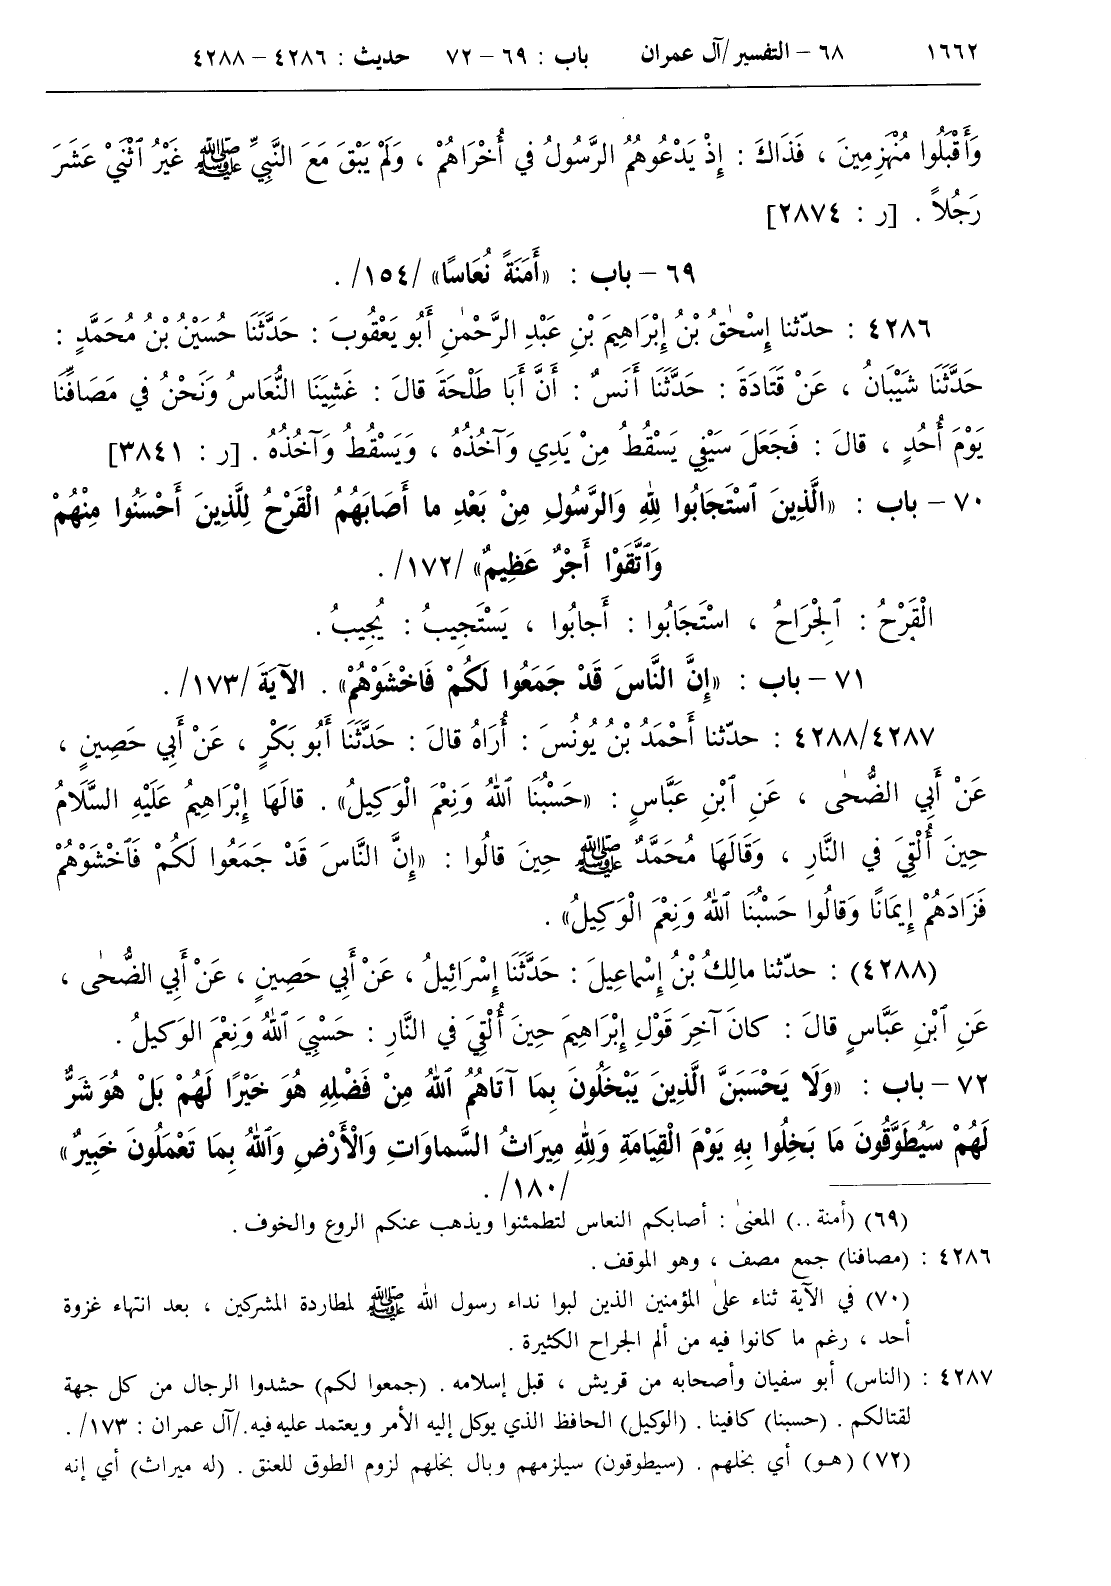 ١٦٦٢ ٦٨ – التفسير/آل عمران باب : ٦٩ – ٧٢ حديث : ٤٢٨٦ – ٤٢٨٨
وَأَقْبَلُوا مُنْهَزِمِينَ ، فَذَاكَ : إِذْ يَدْعُوهُمُ الرَّسُولُ في أُخْرَاهُمْ ، وَلَمْ يَبْقَ مَعَ النَّبِيِّ ﷺ غَيْرُ ٱثْنَيْ عَشَرَ
رَجُلاً . [ر : ٢٨٧٤]
٦٩ – باب : «أَمَنَةً نُعَاسًا» /١٥٤/ .
٤٢٨٦ : حدّثنا إِسْحٰقُ بْنُ إِبْرَاهِيمَ بْنِ عَبْدِ الرَّحْمٰنِ أَبُو يَعْقُوبَ : حَدَّثَنَا حُسَيْنُ بْنُ مُحَمَّدٍ :
حَدَّثَنَا شَيْبَانُ ، عَنْ قَتَادَةَ : حَدَّثَنَا أَنَسٌ : أَنَّ أَبَا طَلْحَةَ قالَ : غَشِيَنَا النُّعَاسُ وَنَحْنُ في مَصَافِّنَا
يَوْمَ أُحُدٍ ، قالَ : فَجَعَلَ سَيْفِي يَسْقُطُ مِنْ يَدِي وَآخُذُهُ ، وَيَسْقُطُ وَآخُذُهُ . [ر : ٣٨٤١]
٧٠ – باب : «الَّذِينَ ٱسْتَجَابُوا لِلهِ وَالرَّسُولِ مِنْ بَعْدِ ما أَصَابَهُمُ الْقَرْحُ لِلَّذِينَ أَحْسَنُوا مِنْهُمْ
وَٱتَّقَوْا أَجْرٌ عَظِيمٌ» /١٧٢/ .
الْقَرْحُ : ٱلْجِرَاحُ ، اسْتَجَابُوا : أَجابُوا ، يَسْتَجِيبُ : يُجِيبُ .
٧١ – باب : «إِنَّ النَّاسَ قَدْ جَمَعُوا لَكُمْ فَاخْشَوْهُمْ» . الآيَةَ /١٧٣/ .
٤٢٨٨/٤٢٨٧ : حدّثنا أَحْمَدُ بْنُ يُونُسَ : أُرَاهُ قالَ : حَدَّثَنَا أَبُو بَكْرٍ ، عَنْ أَبِي حَصِينٍ ،
عَنْ أَبِي الضُّحٰى ، عَنِ ٱبْنِ عَبَّاسٍ : «حَسْبُنَا ٱللهُ وَنِعْمَ الْوَكِيلُ» . قالَهَا إِبْرَاهِيمُ عَلَيْهِ السَّلَامُ
حِينَ أُلْقِيَ في النَّارِ ، وَقَالَهَا مُحَمَّدٌ ﷺ حِينَ قالُوا : «إِنَّ النَّاسَ قَدْ جَمَعُوا لَكُمْ فَٱخْشَوْهُمْ
فَزَادَهُمْ إِيمَانًا وَقالُوا حَسْبُنَا ٱللهُ وَنِعْمَ الْوَكِيلُ» .
(٤٢٨٨) : حدّثنا مالِكُ بْنُ إِسْماعِيلَ : حَدَّثَنَا إِسْرَائِيلُ ، عَنْ أَبِي حَصِينٍ ، عَنْ أَبِي الضُّحٰى ،
عَنِ ٱبْنِ عَبَّاسٍ قالَ : كانَ آخِرَ قَوْلِ إِبْرَاهِيمَ حِينَ أُلْقِيَ في النَّارِ : حَسْبِيَ ٱللهُ وَنِعْمَ الوَكيلُ .
٧٢ – باب : «وَلَا يَحْسَبَنَّ الَّذِينَ يَبْخَلُونَ بِمَا آتَاهُمُ ٱللهُ مِنْ فَضْلِهِ هُوَ خَيْرًا لَهُمْ بَلْ هُوَ شَرٌّ
لَهُمْ سَيُطَوَّقُونَ مَا بَخِلُوا بِهِ يَوْمَ الْقِيَامَةِ وَلِلهِ مِيرَاثُ السَّماوَاتِ وَالْأَرْضِ وَٱللهُ بِمَا تَعْمَلُونَ خَبِيرٌ»
/١٨٠/ .
(٦٩) (أمنة ..) المعنىٰ : أصابكم النعاس لتطمئنوا ويذهب عنكم الروع والخوف .
٤٢٨٦ : (مصافنا) جمع مصف ، وهو الموقف .
(٧٠) في الآية ثناء علىٰ المؤمنين الذين لبوا نداء رسول الله ﷺ لمطاردة المشركين ، بعد انتهاء غزوة
أحد ، رغم ما كانوا فيه من ألم الجراح الكثيرة .
٤٢٨٧ : (الناس) أبو سفيان وأصحابه من قريش ، قبل إسلامه . (جمعوا لكم) حشدوا الرجال من كل جهة
لقتالكم . (حسبنا) كافينا . (الوكيل) الحافظ الذي يوكل إليه الأمر ويعتمد عليه فيه./آل عمران : ١٧٣/ .
(٧٢) (هـو) أي بخلهم . (سيطوقون) سيلزمهم وبال بخلهم لزوم الطوق للعنق . (له ميراث) أي إنه